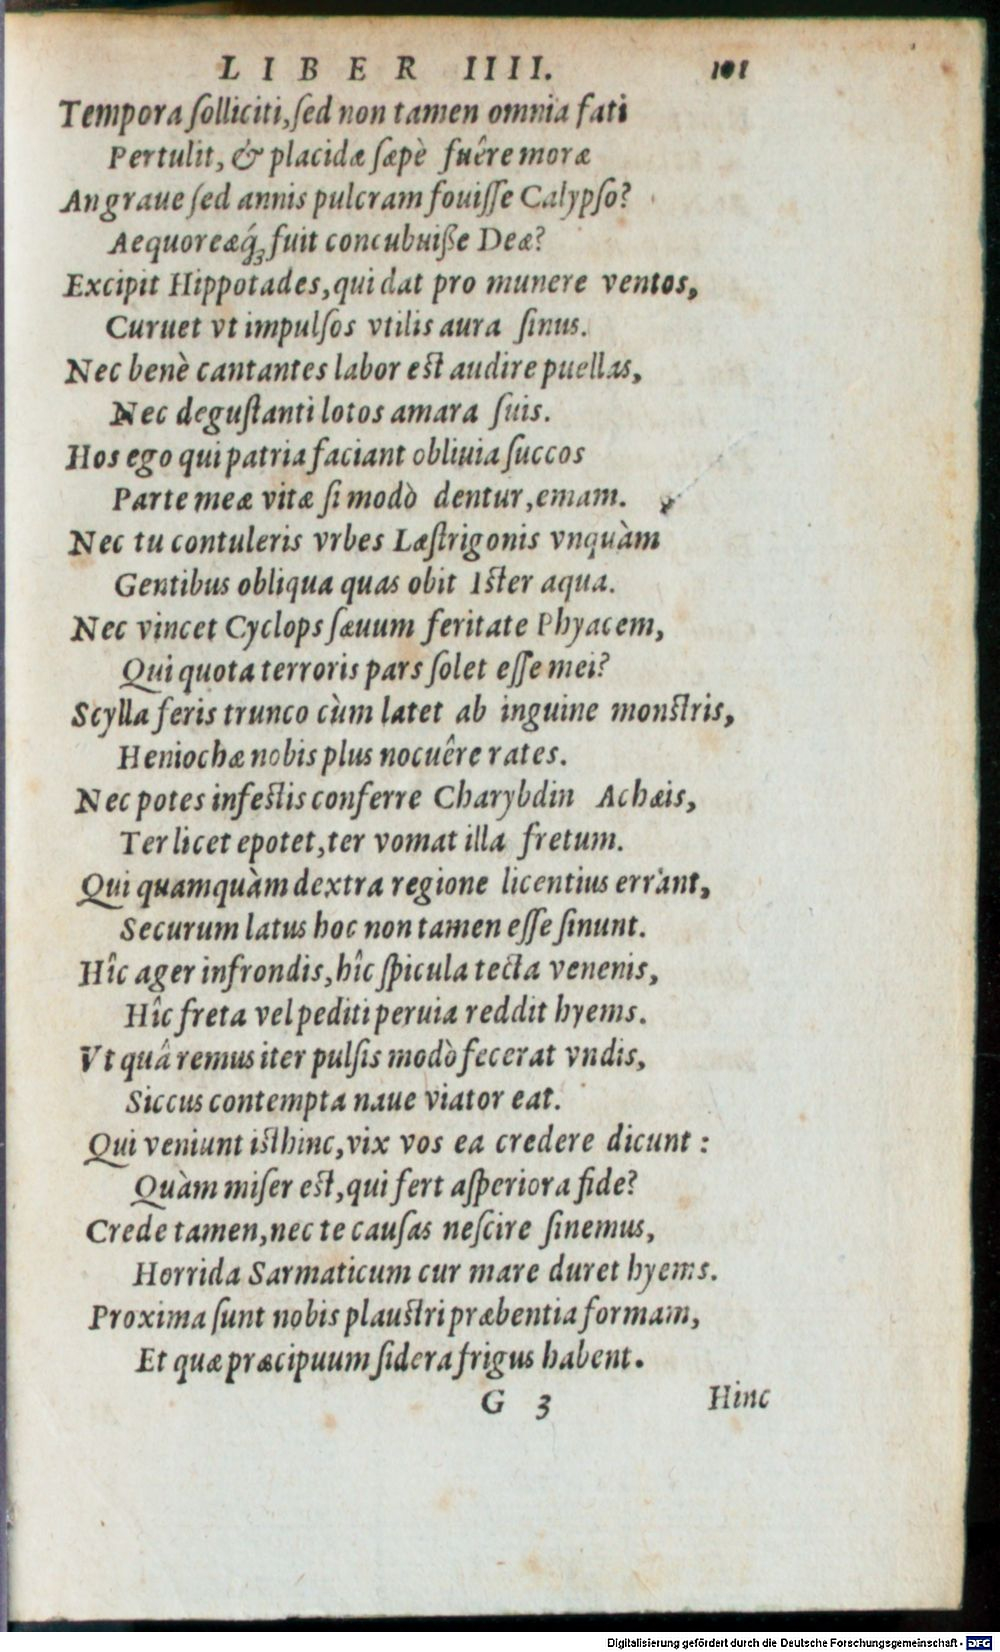 LIBER IIII. 101
Tempora ſolliciti, ſed non tamen omnia fati
Pertulit, & placidæ ſæpè fuêre moræ
An graue ſed annis pulcram fouiſſe Calypſo?
Aequoreæq́ꝫ fuit concubuiße Deæ?
Excipit Hippotades, qui dat pro munere ventos,
Curuet vt impulſos vtilis aura ſinus.
Nec benè cantantes labor est audire puellas,
Nec deguſtanti lotos amara ſuis.
Hos ego qui patria faciant obliuia ſuccos
Parte meæ vitæ ſi modò dentur, emam.
Nec tu contuleris vrbes Læſtrigonis vnquàm
Gentibus obliqua quas obit Ister aqua.
Nec vincet Cyclops ſæuum feritate Phyacem,
Qui quota terroris pars ſolet eſſe mei?
Scylla feris trunco cùm latet ab inguine monstris,
Heniochæ nobis plus nocuêre rates.
Nec potes infestis conferre Charybdin Achæis,
Ter licet epotet, ter vomat illa fretum.
Qui quamquàm dextra regione licentius errant,
Securum latus hoc non tamen eſſe ſinunt.
Hîc ager infrondis, hîc ſpicula tecta venenis,
Hîc freta vel pediti peruia reddit hyems.
Vt quâ remus iter pulſis modò fecerat vndis,
Siccus contempta naue viator eat.
Qui veniunt isthinc, vix vos ea credere dicunt:
Quàm miſer est, qui fert aſperiora fide?
Crede tamen, nec te cauſas neſcire ſinemus,
Horrida Sarmaticum cur mare duret hyems.
Proxima ſunt nobis plaustri præbentia formam,
Et quæ præcipuum ſidera frigus habent.
G 3 Hinc
Digitalisierung gefördert durch die Deutsche Forschungsgemeinschaft - DFG